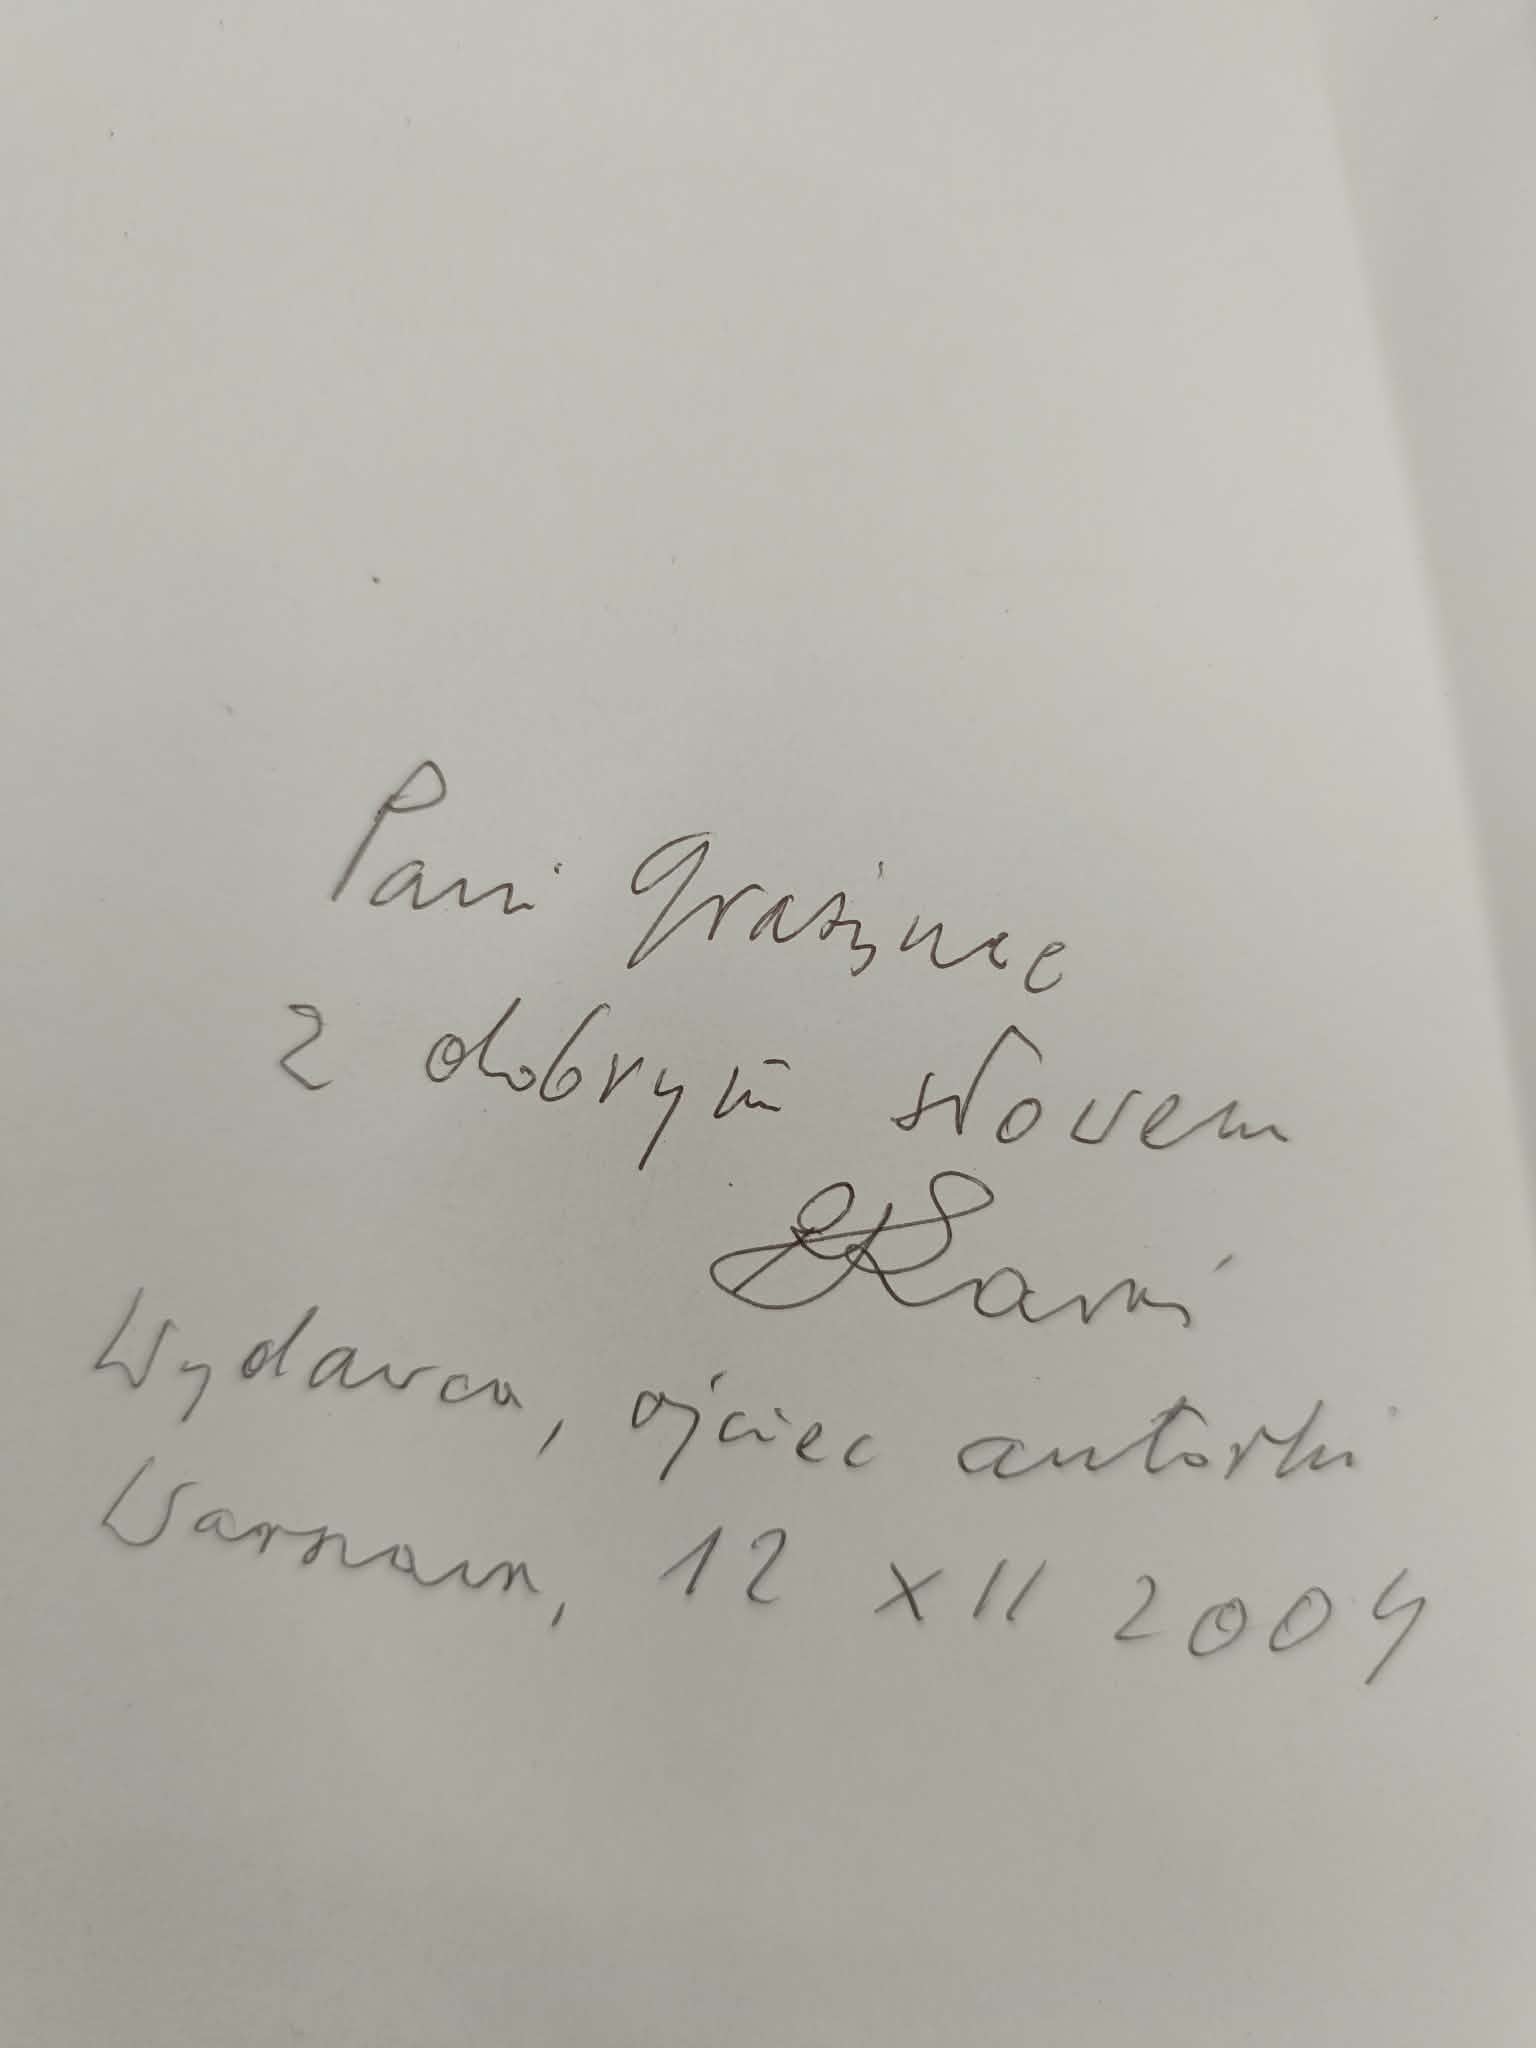 Pani Grażynie
z dobrym słowem
Wydawca, ojciec autorki
Warszawa, 12 XII 2004